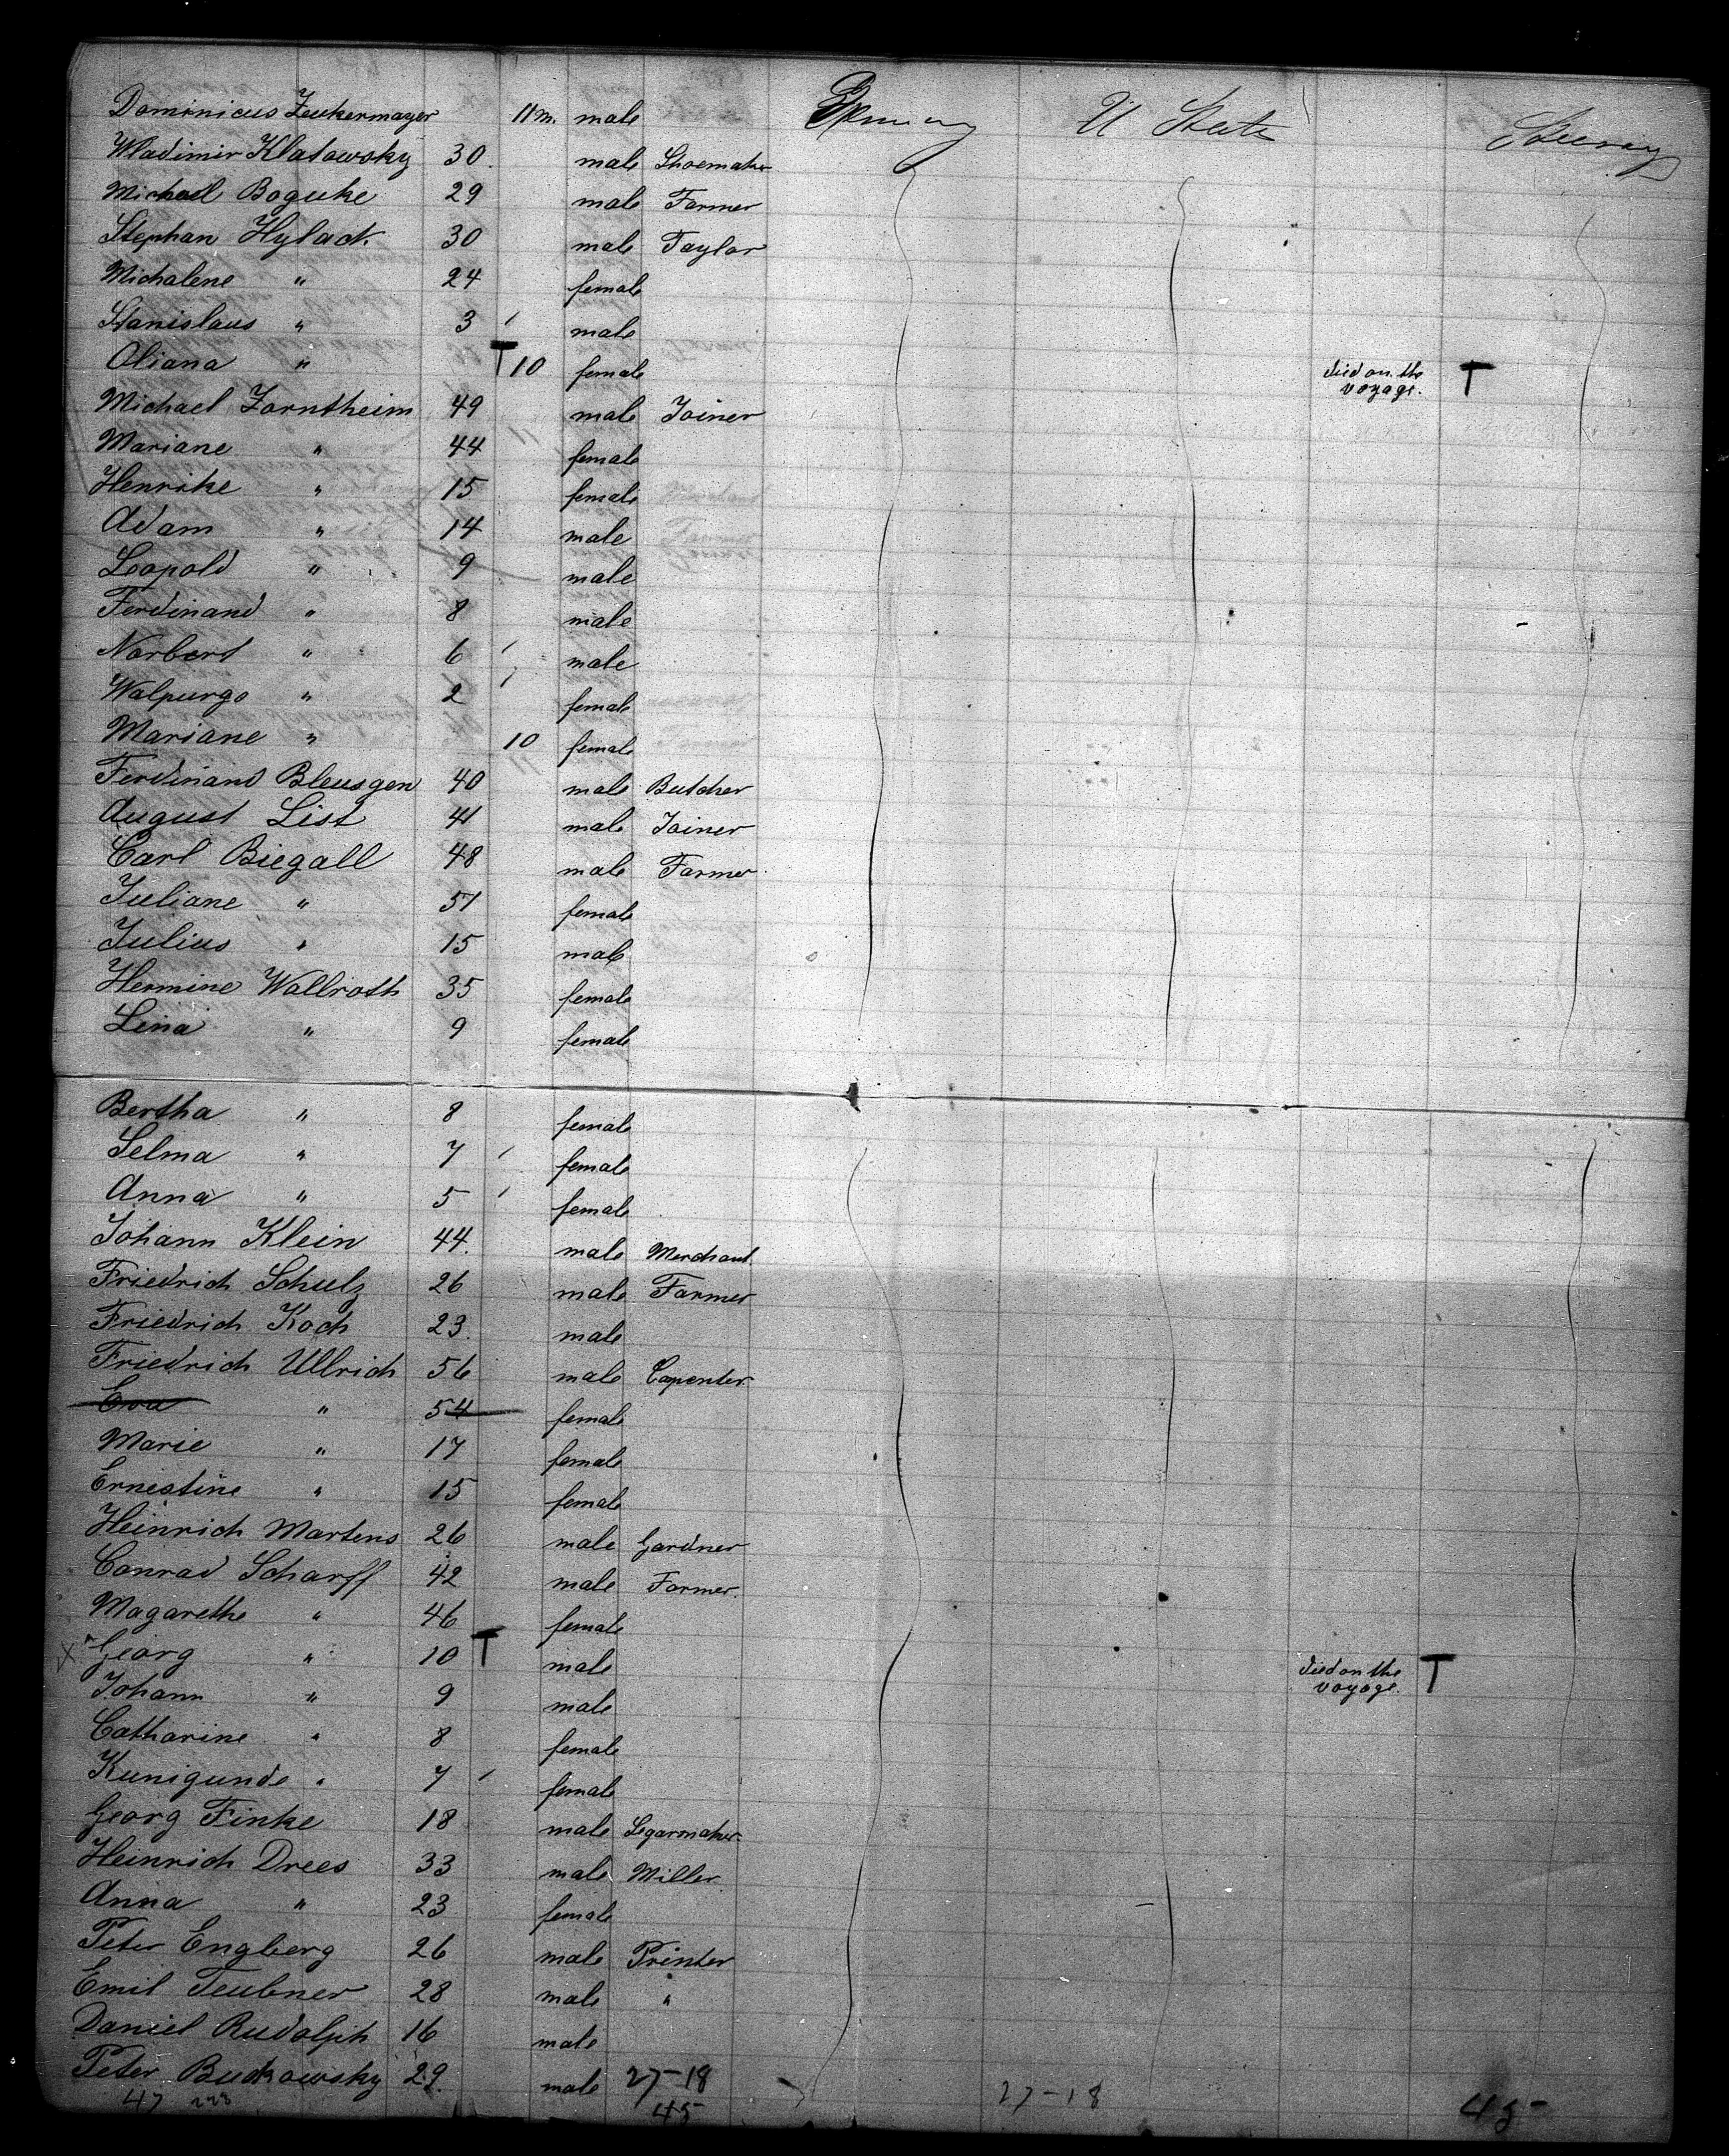 Dominicus Zeukermayer 11 m. male Germany U States Steerag
Wladimir Klatowsky 30. male Shoemaker
Michael Boguke 29 male Farmer
Stephan Hylack 30 male Taylor
Michalene " 24 female
Stanislaus " 3 male
Oliana " T 10 female died on the voyage. T
Michael Zorntheim 49 male Joiner
Mariane " 44 female
Henrike " 15 female
Adam " 14 male
Leopold " 9 male
Ferdinand " 8 male
Norbert " 6 male
Walpurga " 2 female
Mariane " 10 female
Ferdinand Bleusgen 40 male Butcher
August List 41 male Joiner
Carl Biegall 48 male Farmer
Juliane " 51 female
Julius " 15 male
Hermine Wallroth 35 female
Lina " 9 female
Bertha " 8 female
Selma " 7 female
Anna " 5 female
Johann Klein 44. male Merchant.
Friedrich Schulz 26 male Farmer
Friedrich Koch 23. male
Friedrich Ullrich 56 male Capenter.
Eva " 54 female
Marie " 17 female
Ernestine " 15 female
Heinrich Martens 26 male Gardner
Conrad Scharff 42 male Farmer.
Magarethe " 46 female
X Georg " 10 T male died on the voyage. T
Johann " 9 male
Catharine " 8 female
Kunigunde " 7 female
Georg Finke 18 male Segarmaker
Heinrich Drees 33 male Miller
Anna " 23 female
Peter Engberg 26 male Printer
Emil Teubner 28 male "
Daniel Rudolph 16 male
Peter Buckowsky 29. male 27-18 27-18
47 228 45 45